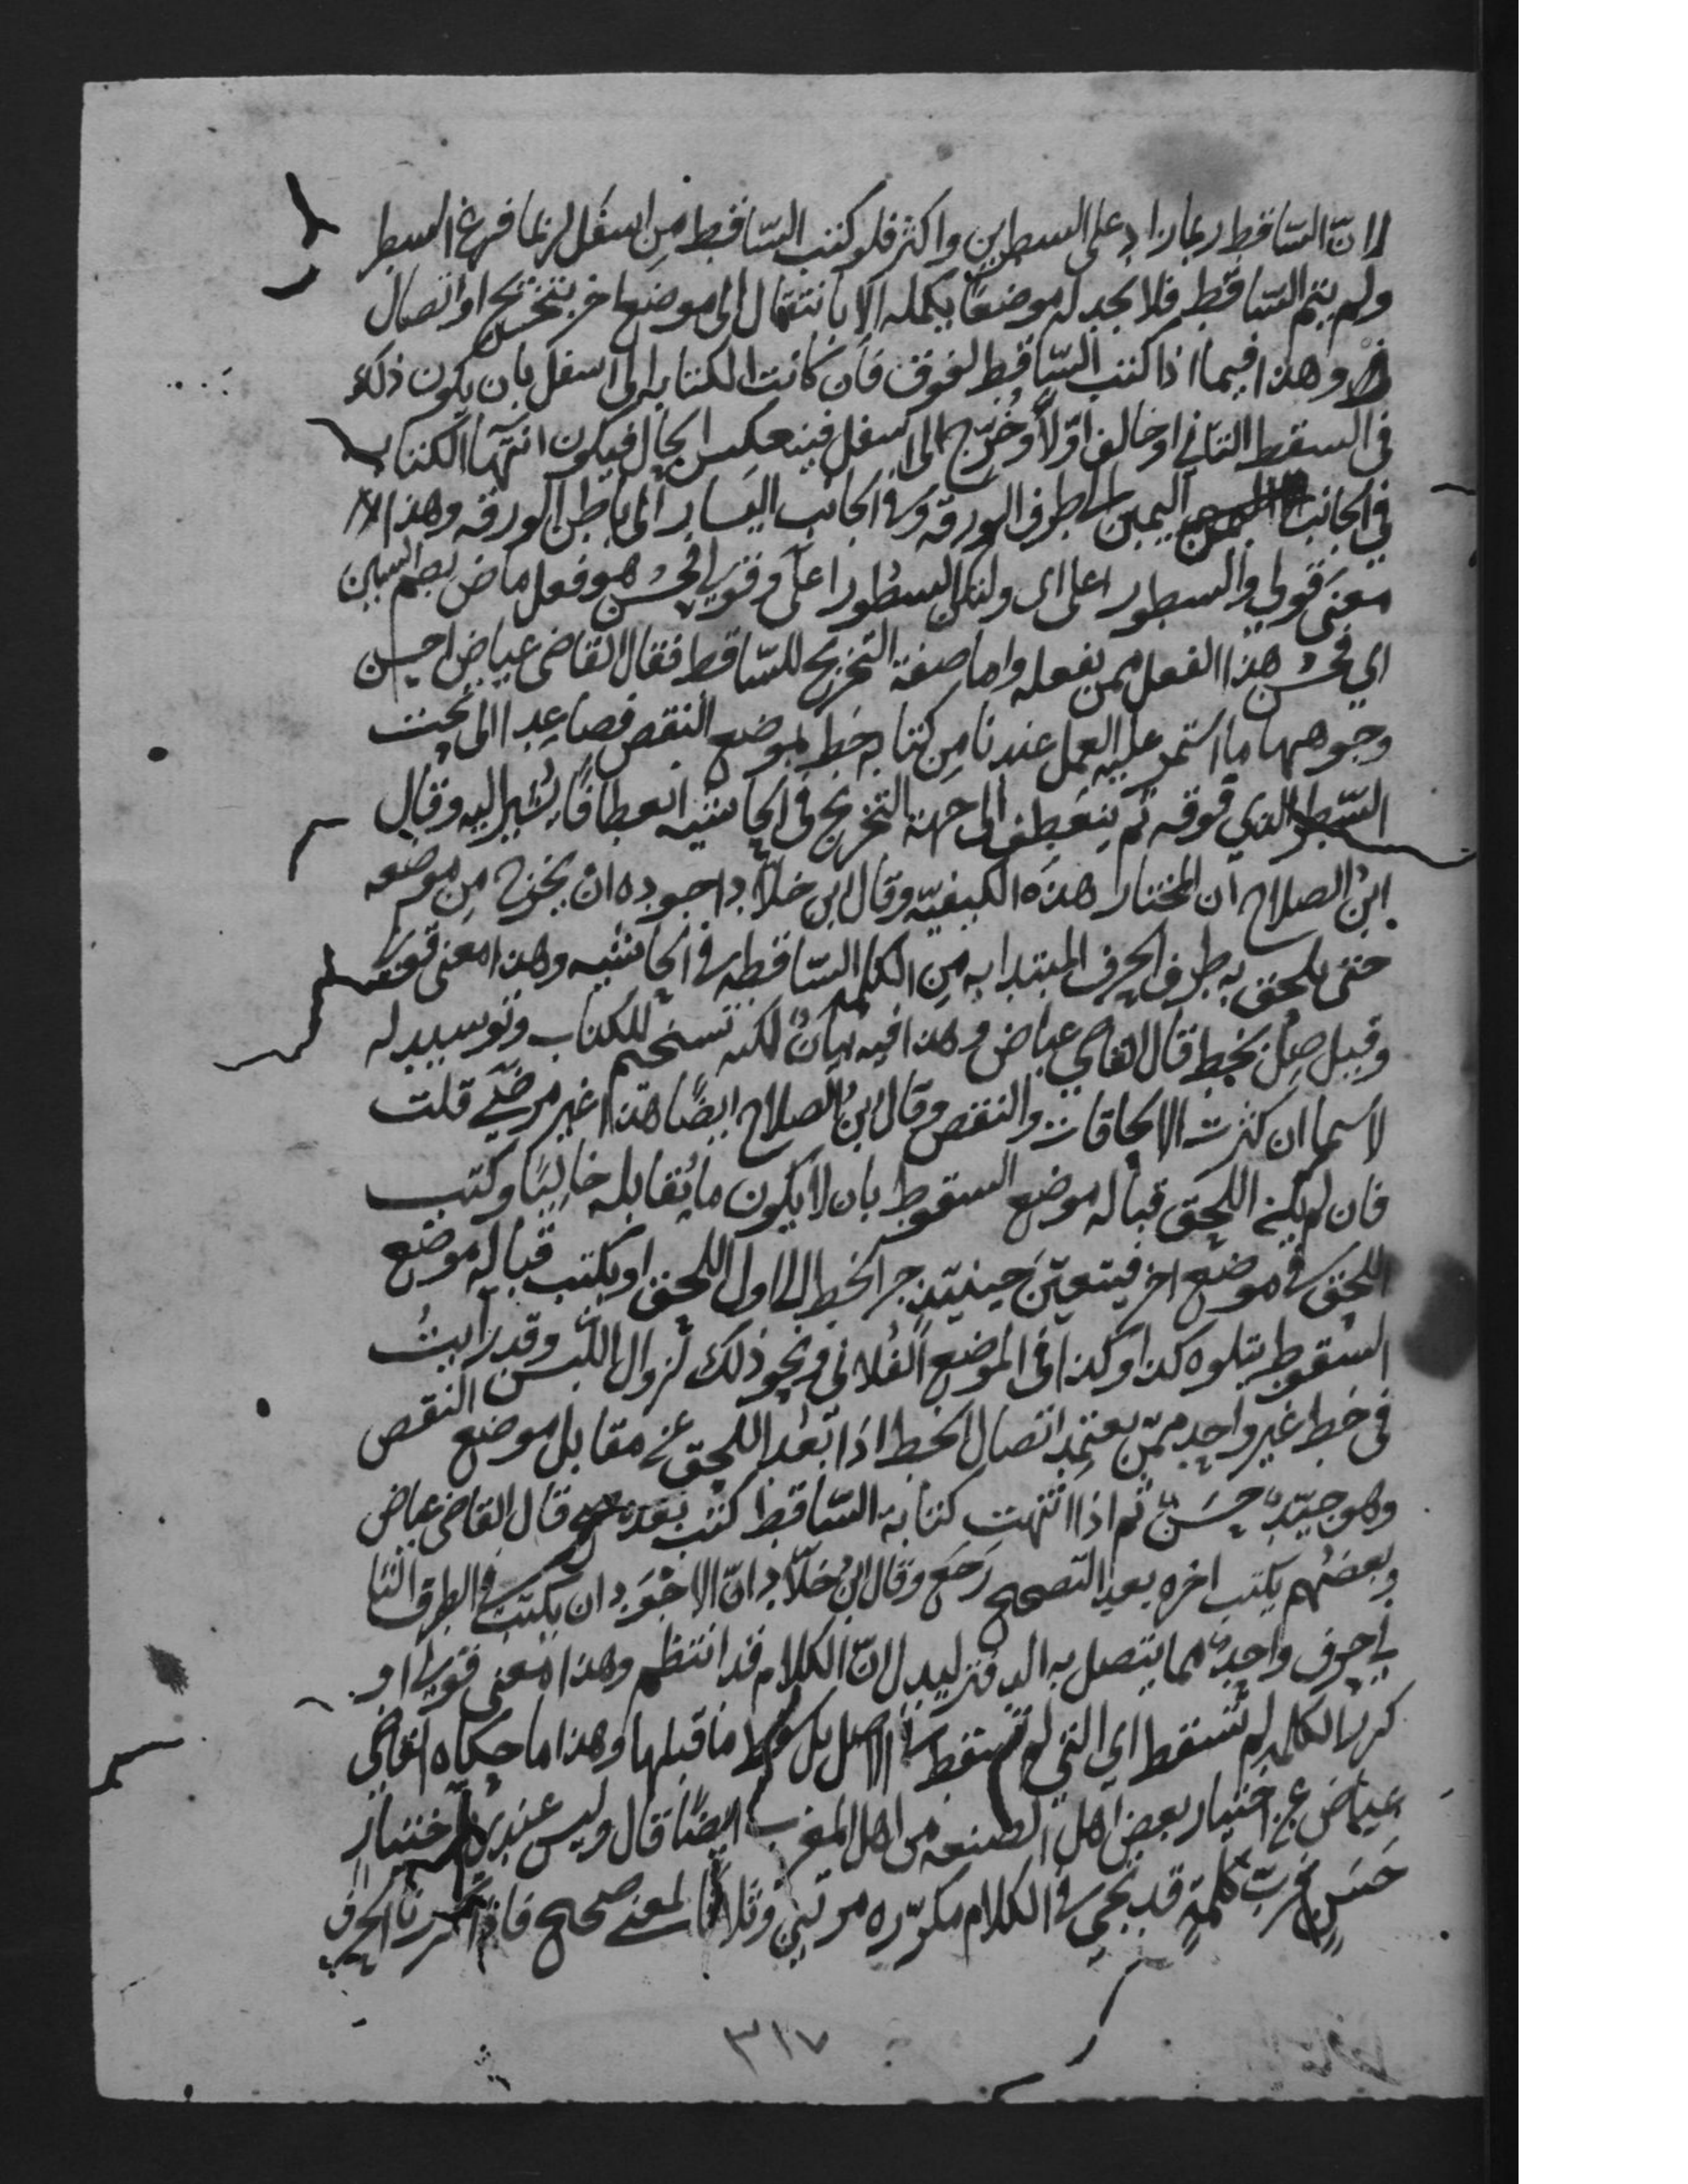 لانّ السّاقط ربما زاد على السطرين واكثر فلو كتب السّاقط من اسفل لربما فرغ السطر
ولم يتم السّاقط فلا يجد له موضعًا يكمله الا بانتقال الى موضع اخر بتخريج او اتصال
وهذا فيما اذا كتب السّاقط لفوق فان كانت الكتابه الى اسفل بان يكون ذلك
في السقط الثاني او خالف اوّلًا وخرّج الى اسفل فينعكس الحال فيكون انتهآ الكتابه
في الجانب اليمين الى طرف الورقه وفي الجانب اليسار الى باطن الورقه وهذا
معنى قولي والسطور اعلى اى ولتكن السطور اعلى وقولي فحسُن هو فعل ماض بضم السين
اي فحسُن هذا الفعل ممن يفعله واما صفة التخريج للسّاقط فقال القاضي عياض احسن
وجوهها ما استمر عليه العمل عندنا مِن كتابه خط بموضع النقص فصاعِدا الى تحت
السّطر الذي فوقه ثم ينعطف الى جهة التخريج في الحاشيه انعطافًا يُشير اليه وقال
ابنُ الصلاح ان المختار هذه الكيفيّه وقال ابن خلّاد اجوده انْ يخرج مِن موضعه
حتى يلحق به طرف الحرف المبتدا به مِن الكلمه السّاقطه في الحاشيه وهذا معنى قولي
وقيل صِلْ بخط قال القاضي عياض وهذا فيه بيانٌ لكنه تسخيم للكتاب وتوسيد له
لاسيما ان كثرت الالحاقات والنقص وقال ابنُ الصلاح ايضًا هذا غير مرضيّ قلت
فان لم يكن اللحق قباله موضع السقوط بان لا يكون ما يُقابله خاليًا وكتب
اللحق في موضع اخر فيتعيّن حينئذٍ جر الخط الى اول اللحق او يكتب قباله موضع
السقوط يتلوه كذا وكذا في الموضع الفُلاني ونحو ذلك لزوال اللبس وقد رأيتُ
في خط غير واحد ممّن يعتمِد اتصال الخط اذا بَعُد اللحق عن مقابل موضع النقص
وهو جيّدٌ حسَنٌ ثم اذا انتهت كتابة السّاقط كتب بعده صح قال القاضي عياض
وبعضُهم يكتب اخره بعد التصحيح رَجَعَ وقال ابنُ خلّاد انّ الاجْوَد ان يكتب في الطرف الثا
ني حرف واحِدٌ مما يتصل به الدفتر ليدل انّ الكلام قد انتظم وهذا معنى قولي او
كرر الكلمه لم تسقط اى التي لم تسقط في الاصل بل سقط ما قبلها وهذا ما حكاه القاضي
عياض عن اختيار بعض اهل الصنعه من اهل المغرب ايضًا قال وليس عندي باختيارٍ
حَسَنٍ فرُبّ كلمةٍ قد تجي في الكلام مكرّره مرتين وثلاثًا لمعنى صحيح فاذا كررنا الحرف
٣١٧